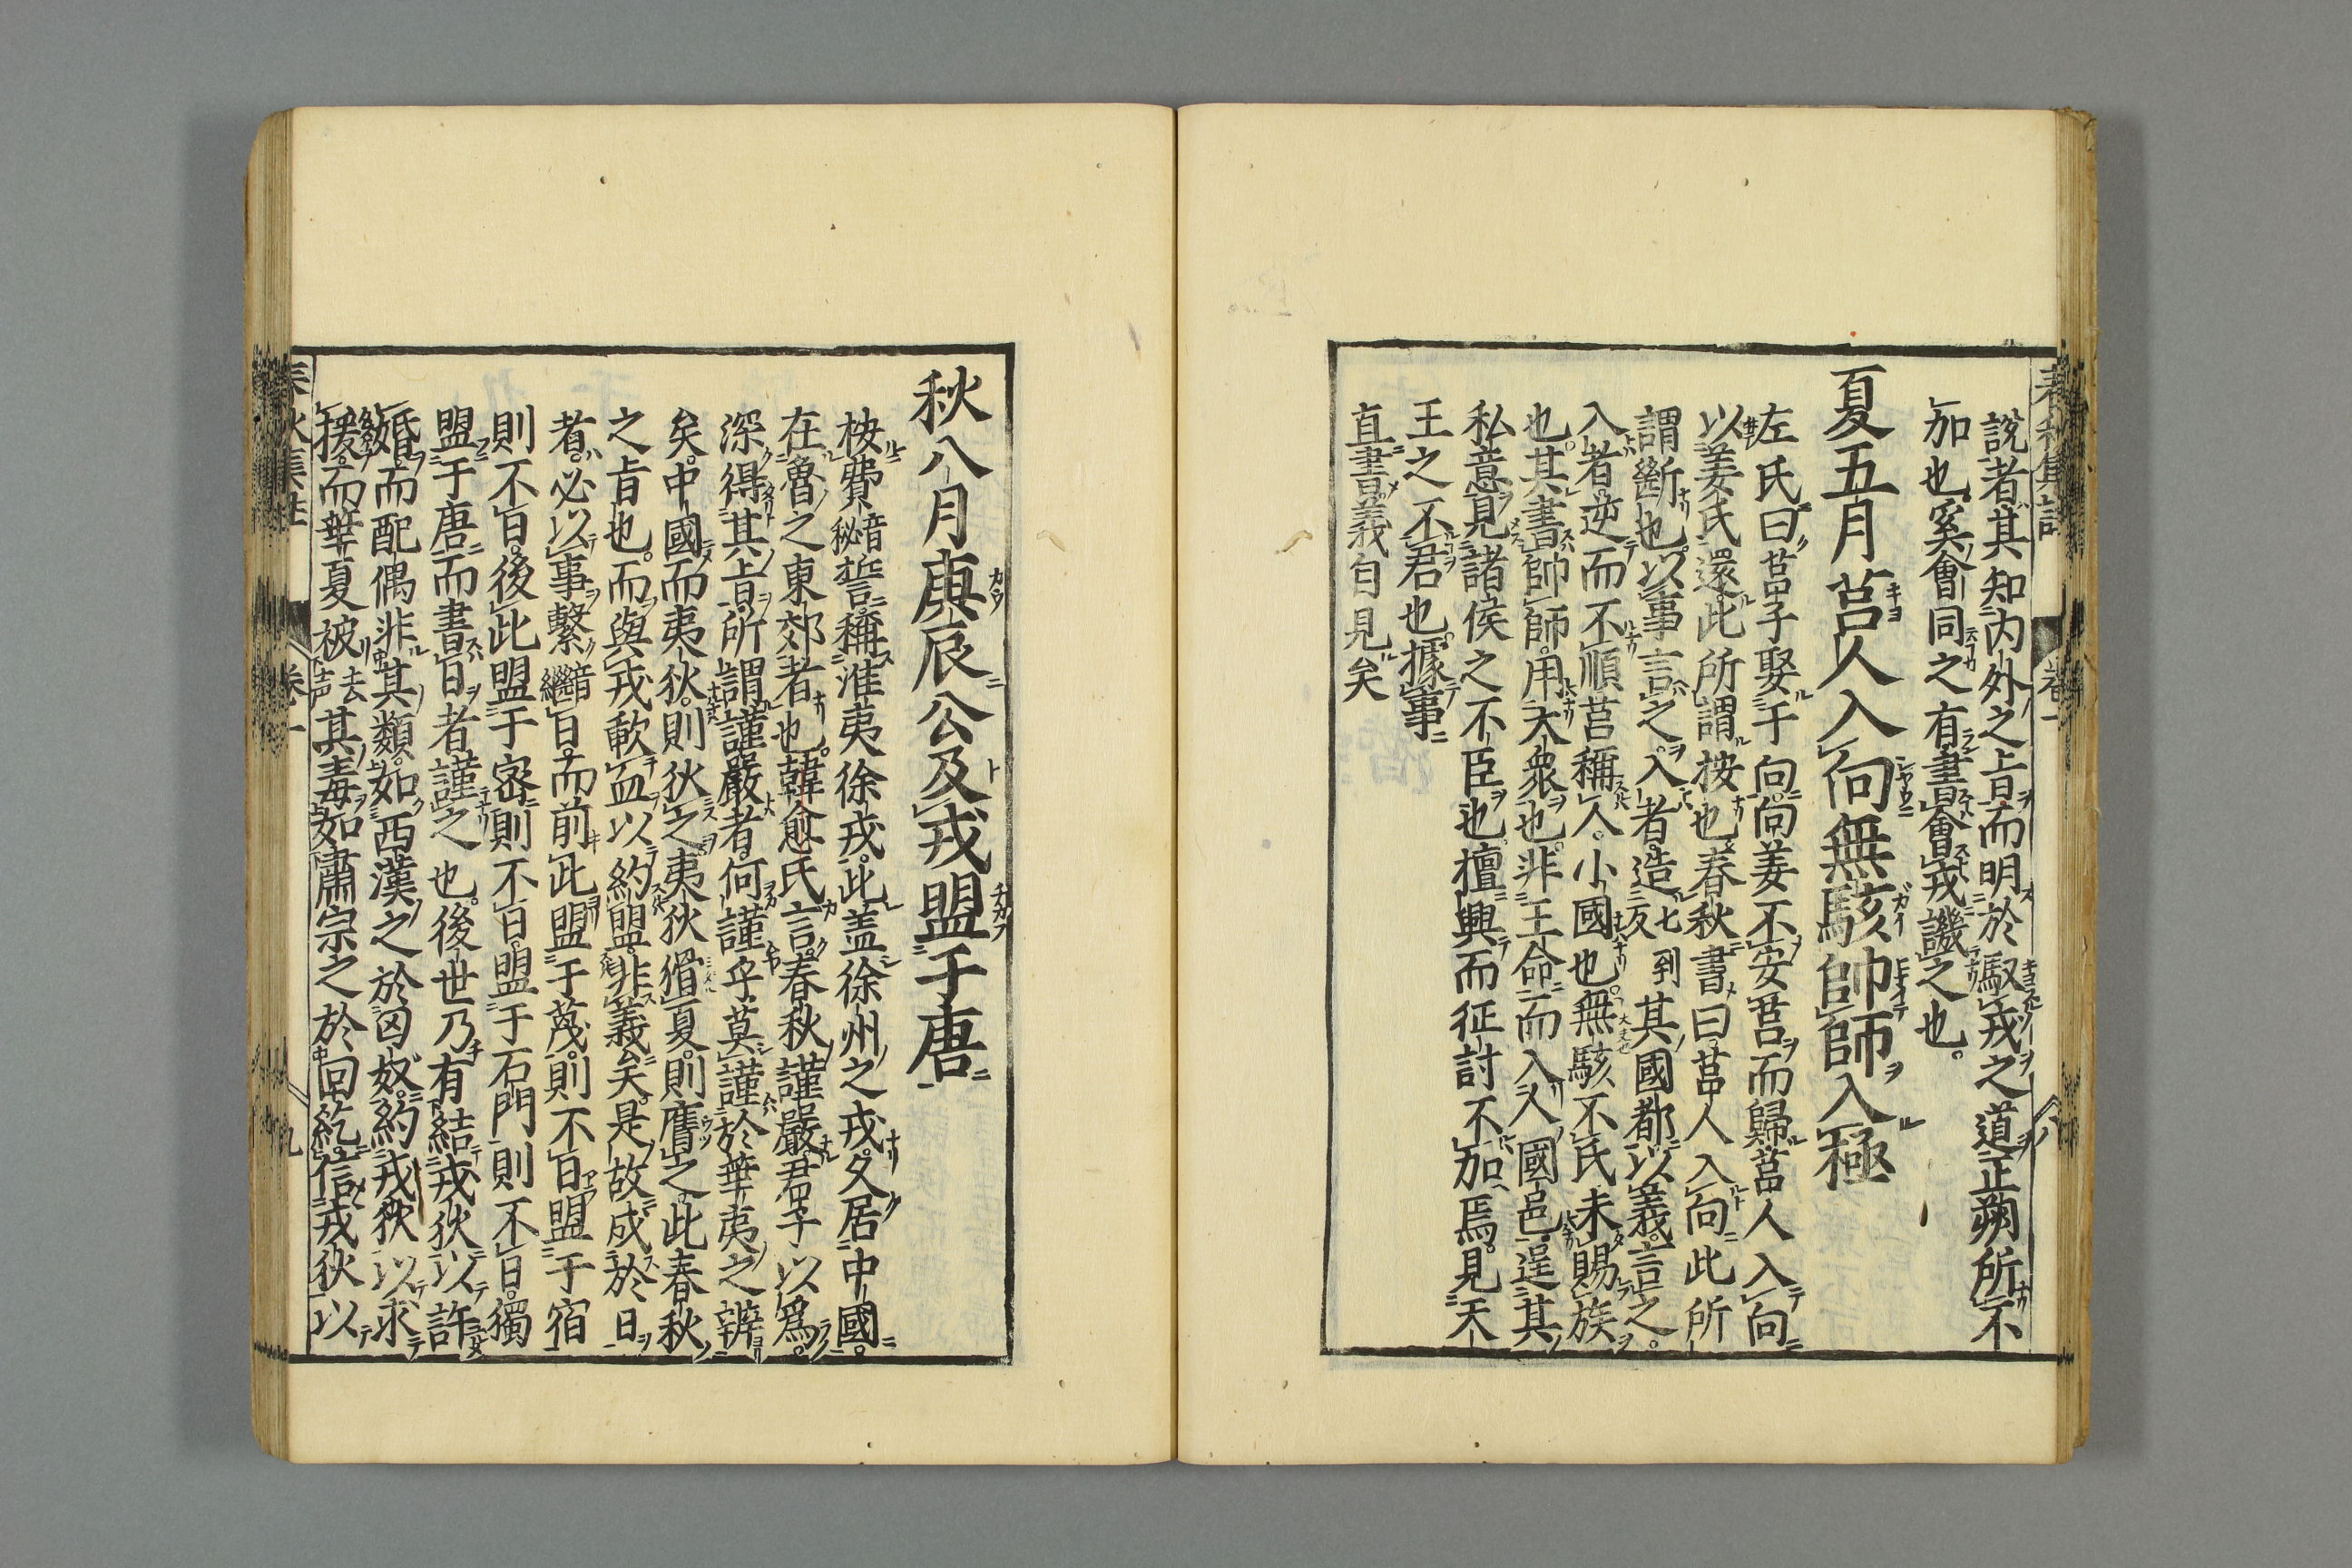 春秋集註 卷一 八
說者其知內外之旨而明於馭戎之道正朔所不
加也奚會同之有書會戎譏之也。
夏五月莒人入向無駭帥師入極
左氏曰莒子娶于向向姜不安莒而歸莒人入向
以姜氏還此所謂按也春秋書曰莒人入向此所
謂斷也以事言之。入者造七到反其國都以義言之。
入者逆而不順莒稱人。小國也。無駭不氏未賜族
也。其書帥師用大衆也。非王命而入人國邑逞其
私意見諸侯之不臣也擅興而征討不加焉。見天
王之不君也。據事
直書義自見矣
秋八月庚辰公及戎盟于唐
按費音秘誓稱淮夷徐戎。此盖徐州之戎。久居中國。
在魯之東郊者也。韓愈氏言。春秋謹嚴。君子以爲。
深得其旨。所謂謹嚴者。何謹乎。莫謹於華夷之辨
矣。中國而夷狄。則狄之。夷狄猾夏。則膺之。此春秋
之旨也。而與戎歃血以約盟。非義矣。是故成於日
者。必以事繫音繼日。而前此盟于蔑。則不日盟于宿
則不日。後此盟于密則不日。盟于石門則不日。獨
盟于唐而書日者謹之也。後世乃有結戎狄以許
婚。而配偶非其類。如西漢之於匈奴。約戎狄以求
援。而華夏被去聲其毒。如肅宗之於回紇。信戎狄以
春秋集註 卷一 九